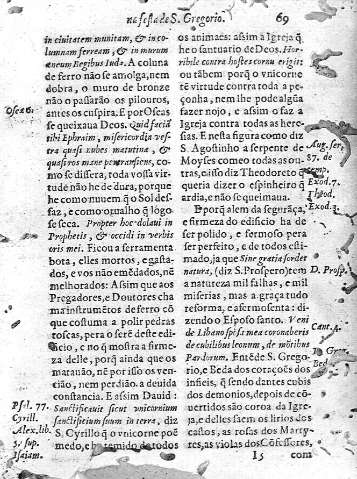 na festa de S. Gregorio. 69
in ciuitatem munitam, & in co-
lumnam ferream, & in murum
æneum Regibus Iuda. A coluna
de ferro não se amolga, nem
dobra, o muro de bronze
não o passarão os pilouros,
antes os cuspira. E por Oseas
se queixaua Deos. Quid faciã
tibi Ephraim, misericordia ves
tra quasi nubes matutina, &
quasi ros mane pertransiens, co-
mo se dissera, toda vossa virtu-
de não he de dura, porque
he como nuuem q̃ o Sol des-
faz, e como orualho q̃ logo
se seca. Propter hoc dolaui in
Prophetis, & occidi in verbis
oris mei. Ficou a ferramenta
bota, elles mortos, e gasta-
dos, e vos não emẽdados, nẽ
melhorados: A sim que aos
Pregadores, e Doutores cha
ma instrumẽtos de ferro cõ
que costuma a polir pedras
toscas, pera o serẽ deste edi-
ficio, e no q̃ mostra a firme-
za delle, porq̃ ainda que os
matauão, nẽ por isso os ven-
cião, nem perdião a deuida
constancia. E assim Dauid:
Sanctificauit sicut vnicornium
sanctificium suum in terra, diz
S. Cyrillo q̃ o vnicorne poẽ
medo, e he temido de todos
Oseæ 6.
Psal. 77.
Cyrill.
Alex. lib.
3. sup.
Isaiam.
os animaes: assim a Igreja q̃
he o santuario de Deos. Hor-
ribile contra hostes cornu erigit:
ou tãbem porq̃ o vnicorne
tẽ virtude contra toda a pe-
çonha, nem lhe pode algũa
fazer nojo, e assim o faz a
Igreja contra todas as here-
sias. E nesta figura como diz
S. Agostinho a serpente de
Moyses comeo todas as ou-
tras, o isso diz Theodoreto q̃
queria dizer o espinheiro q̃
ardia, e não se queimaua.
Porq̃ alem da segurãça,
e firmeza do edificio ha de
ser polido, e fermoso pera
ser perfeito, e de todos esti-
mado, ja que Sine gratia sordet
natura, (diz S. Prospero) tem
a natureza mil falhas, e mil
miserias, mas a graça tudo
reforma, e afermosenta: di-
zendo o Esposo santo. Veni
de Libano spõsa mea coronaberis
de cubilibus leonum, de mõtibus
Pardorum. Entẽde S. Grego-
rio, e Beda dos coraçoẽs dos
infieis, q̃ sendo dantes cubis
dos demonios, depois de co-
uertidos são coroa da Igre-
ja, e delles saem os lirios dos
castos, as rosas dos Marty-
res, as violas dos Cõfessores,
Aug. ser.
87. de
Exod. 7.
Theod.
Exod. 3.
D. Prosp.
Cant. 4.
I 5 com